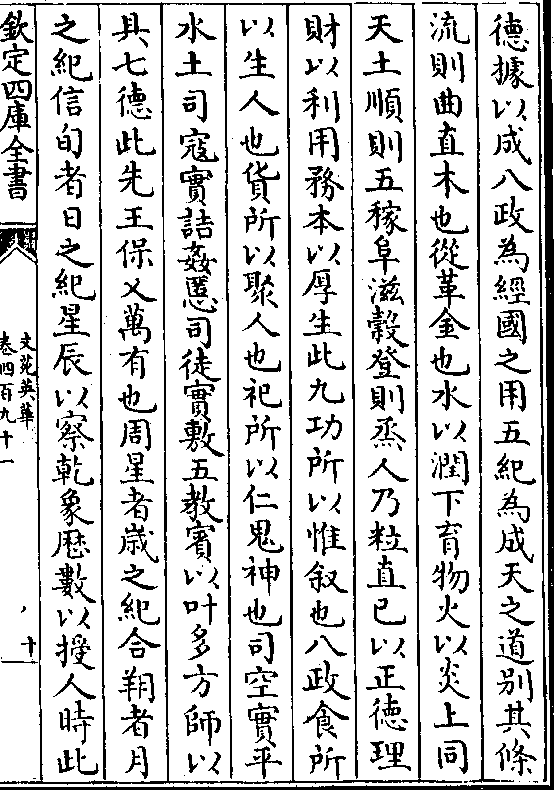 德據以成八政為經國之用五紀為成天之道别其條
流則曲直木也從革金也水以潤下育物火以炎上同
天土順則五稼阜滋穀登則烝人乃粒直已以正德理
財以利用務本以厚生此九功所以惟叙也八政食所
以生人也貨所以聚人也祀所以仁鬼神也司空實平
水土司寇實詰姦慝司徒實敷五教賓以叶多方師以
具七德此先王保乂萬有也周星者歳之紀合朔者月
之紀信旬者日之紀星辰以察乾象厯數以授人時此
欽定四庫全書
文苑英華
卷四百九十一
十